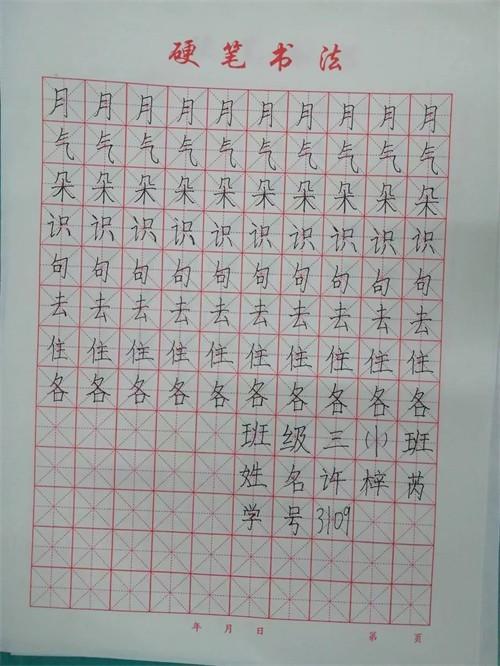 硬笔书法
月月月月月月月月月月
气气气气气气气气气气
朵朵朵朵朵朵朵朵朵朵
识识识识识识识识识识
句句句句句句句句句句
去去去去去去去去去去
住住住住住住住住住住
各各各各各各各各各各
班级三(1)班
姓名许梓芮
学号3109
年 月 日 第 页